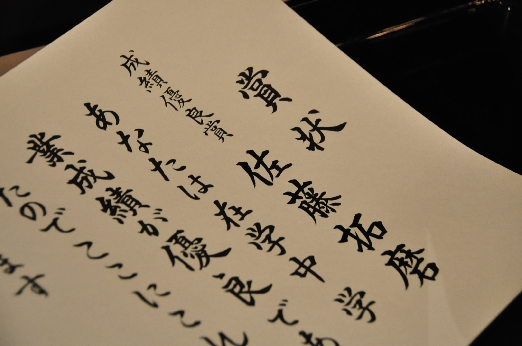 賞状
成績優良賞 佐藤拓磨
あなたは在学中学
業成績が優良であ
たのでここにこ
ます